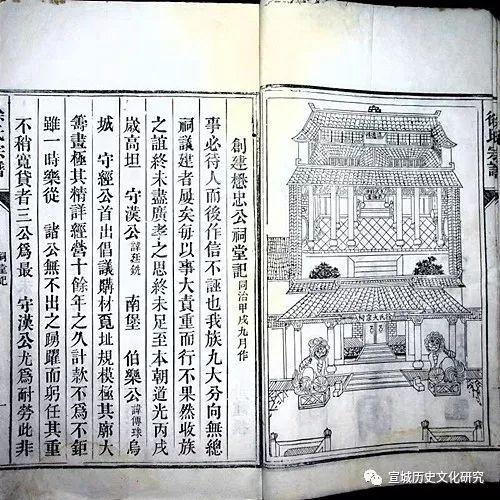 徐氏宗譜
徐氏大宗祠
創建懋忠公祠堂記 同治甲戌九月作
事必待人而後作信不誣也我族九大分向無總
祠議建者屢矣每以事大責重而行不果然收族
之誼終未盡廣孝之思終未足至本朝道光丙戌
歲高坦 守漢公 諱廷銑 南堡 伯樂公 諱傳珠 烏
城 守經公首出倡議購材覓址規模極其廓大
籌畫極其精詳經營十餘年之久計款不爲不鉅
雖一時樂從 諸公無不出之踴躍而躬任其重
不稍寬貸者三公爲最 守漢公尤爲耐勞此非
氏宗譜
祠堂記
一
宣城历史文化研究